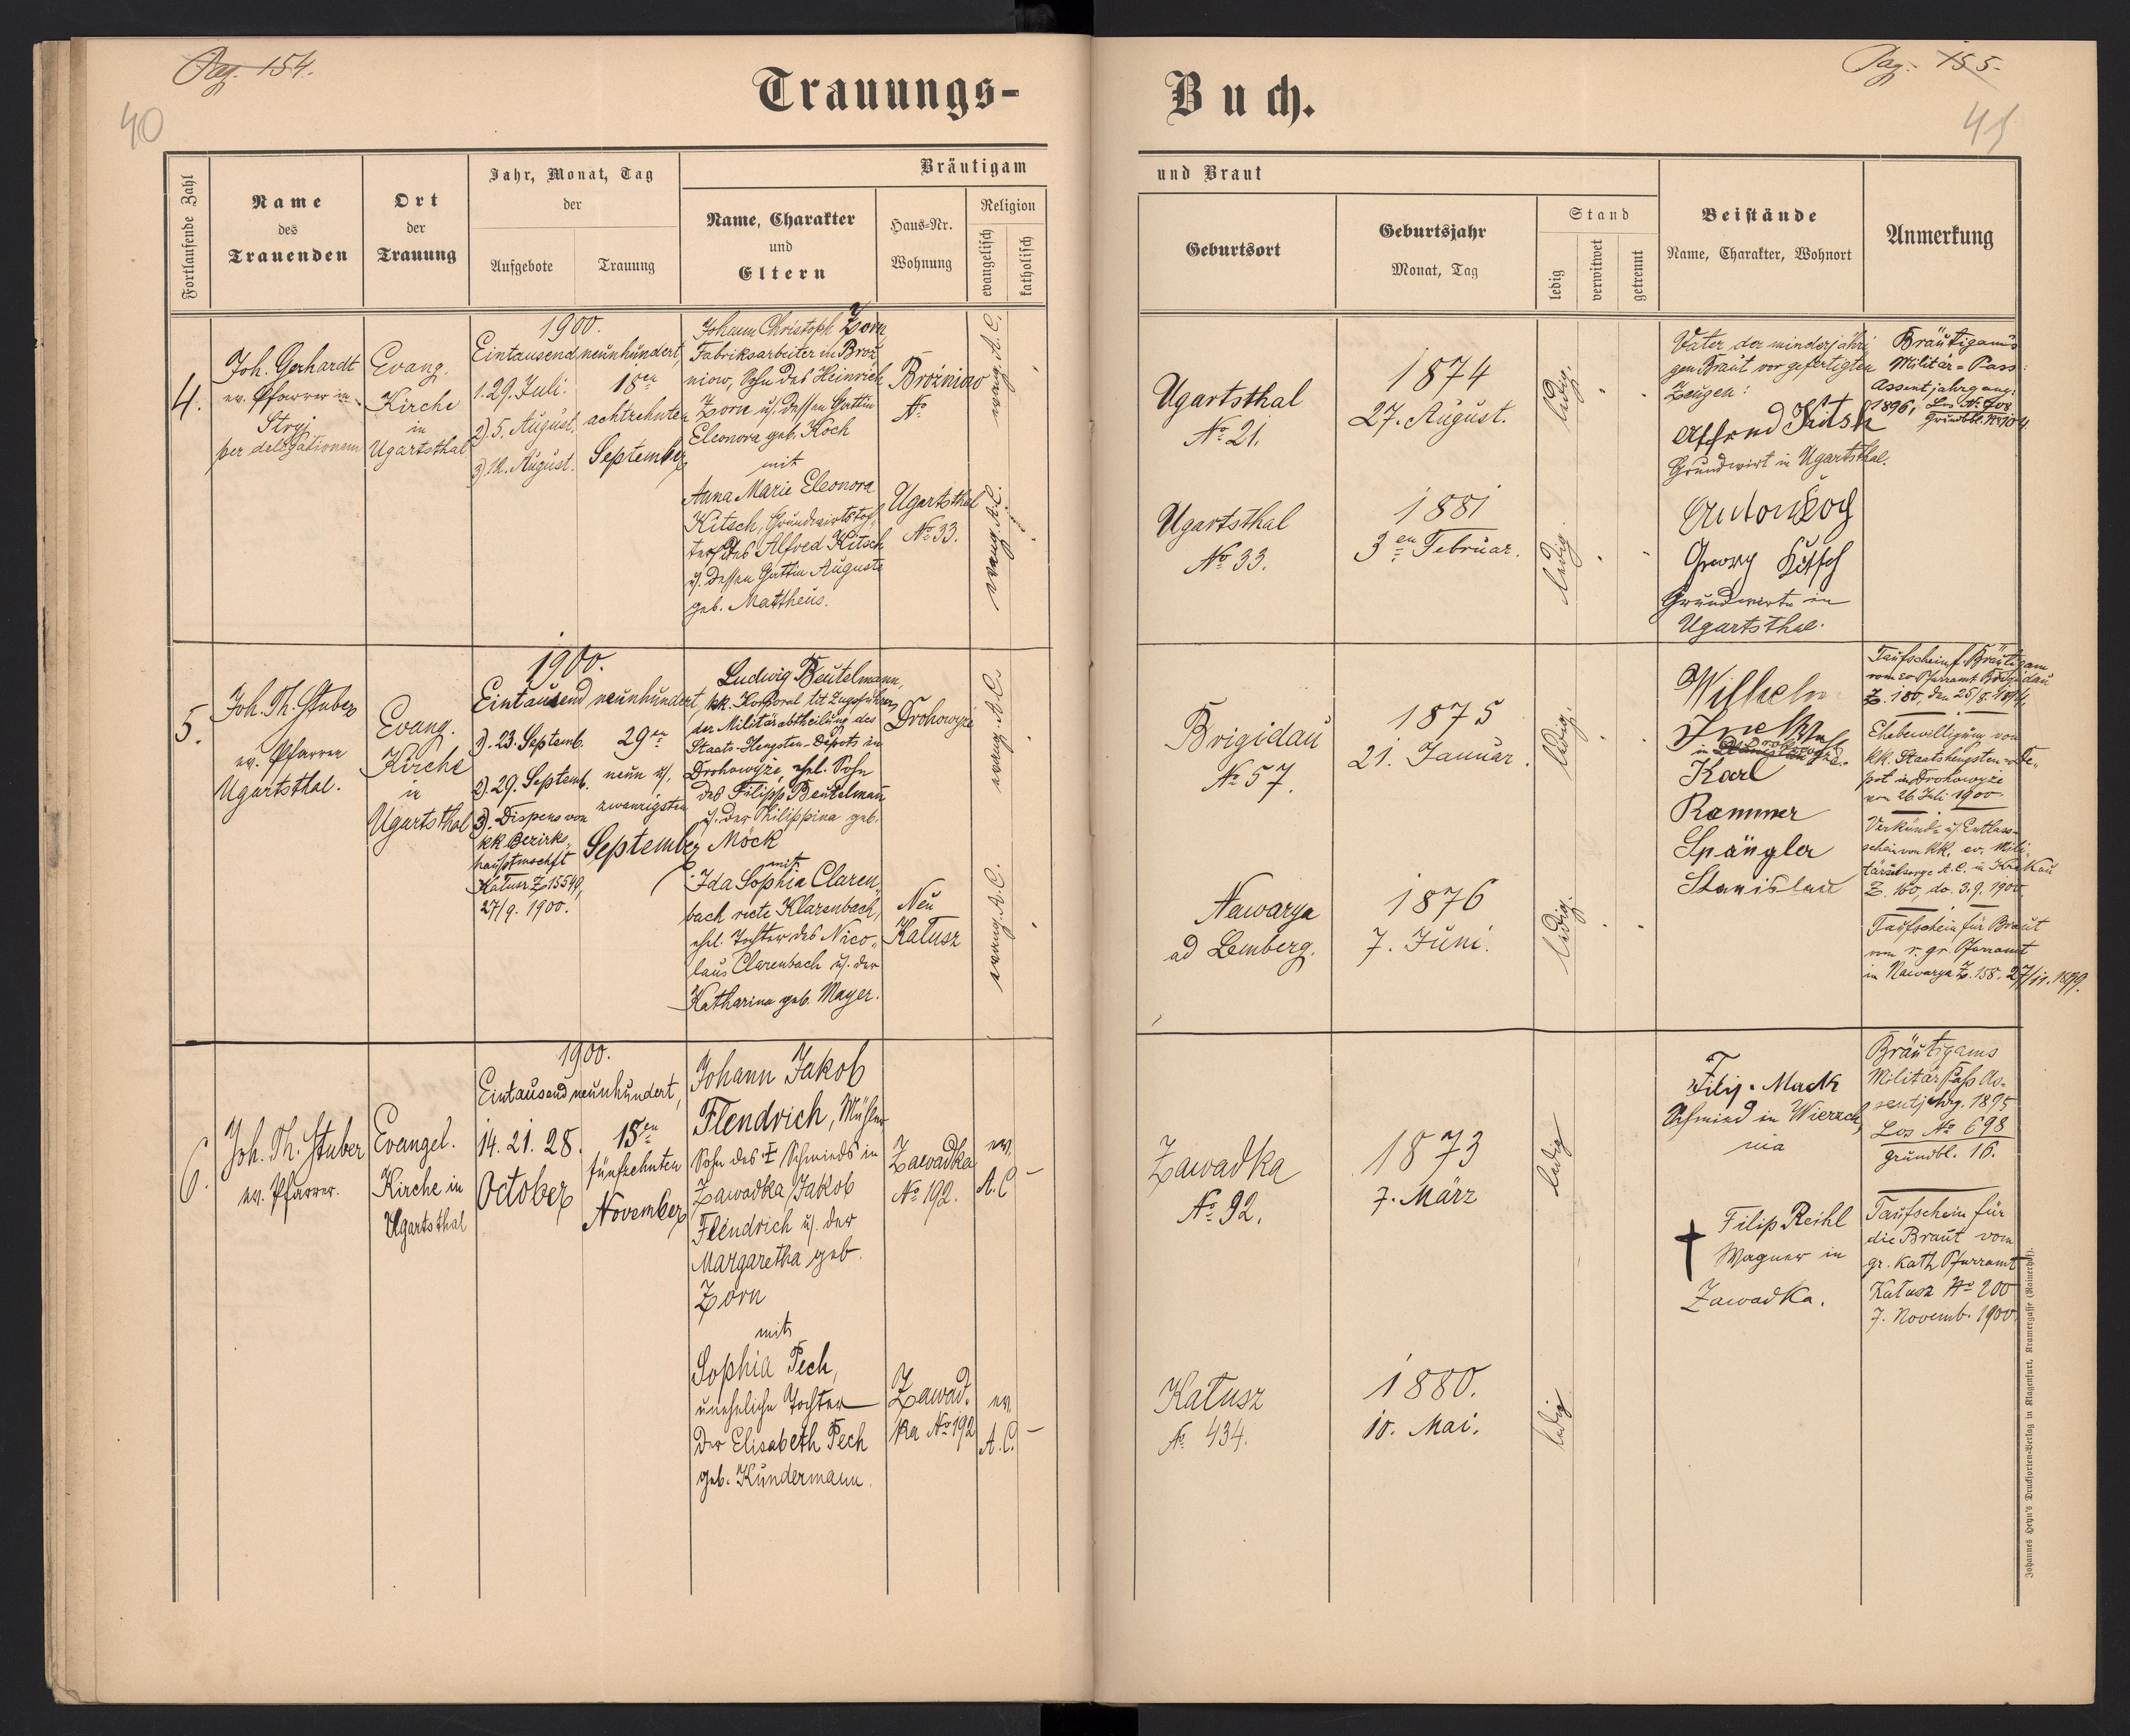 Pag. 154.
40
Trauungs-
Fortlaufende Zahl
Name
des
Trauenden
Ort
der
Trauung
Jahr, Monat, Tag
der
Aufgebote
Trauung
Bräutigam
Name, Charakter
und
Eltern
Haus-Nr.
Wohnung
Religion
evangelisch
katholisch
4.
Joh. Gerhardt
ev. Pfarrer in
Stryj
per delegationem
Evang.
Kirche
in
Ugartsthal
1900.
Eintausend neunhundert,
1. 29. Juli.
2). 5. August.
3) 12. August.
18en
achtzehnten
September
Johann Christoph Zorn
Fabriksarbeiter in Broż
niow, Sohn des Heinrich
Zorn u. dessen Gattin
Eleonora geb. Koch
mit
Anna Marie Eleonora
Kitsch, Grundwirtstoch
ter des Alfred Kitsch
u. dessen Gattin Auguste
geb. Mattheus.
Brożniow
No
Ugartsthal
No 33.
evang. A. C.
evang. A. C.
5.
Joh. Th. Stuber
ev. Pfarrer
Ugartsthal.
Evang.
Kirche
in
Ugartsthal
1900.
Eintausend neunhundert,
1). 23. Septemb.
2). 29. Septemb.
3). Dispens von
kk Bezirks-
hauptmschft
Kałusz Z 15549,
27/9. 1900.
29en
neun u.
zwanzigsten
September
Ludwig Beutelmann,
kk. Korporal tit Zugsführer
der Militärabtheilung des
Staats-Hengsten-Depots in
Drohowyże, ehel. Sohn
des Filipp Beutelmann
u. der Philippina geb.
Möck
mit
Ida Sophia Claren
bach recte Klarenbach,
ehel. Tochter des Nico-
laus Clarenbach u. der
Katharina geb. Mayer.
Drohowyże
Neu
Kałusz
evang. A. C.
evang. A. C.
6.
Joh. Th. Stuber
ev. Pfarrer.
Evangel.
Kirche in
Ugartsthal
1900.
Eintausend neunhundert,
14. 21. 28.
October
15en
fünfzehnten
November
Johann Jakob
Flendrich,
Sohn des Schmieds in
Zawadka Jakob
Flendrich u. der
Margaretha geb.
Zorn
mit
Sophia Pech,
uneheliche Tochter
der Elisabeth Pech
geb. Kundermann.
Zawadka
No 192.
Zawad-
ka No 192
ev.
A. C
ev.
A. C.
Pag. 155.
Buch.
und Braut
Geburtsort
Geburtsjahr
Monat, Tag
Stand
ledig
verwitwet
getrennt
Beistände
Name, Charakter, Wohnort
Anmerkung
Ugartsthal
No 21.
1874
27. August.
ledig.
Ugartsthal
No 33.
1881
3en Februar.
ledig.
Vater der minderjähri
gen Braut vor gefertigten
Zeugen:
Alfred Kitsch
Grundwirt in Ugartsthal.
Anton Koch
Georg Kitsch
Grundwirte in
Ugartsthal.
Bräutigams
Militär-Pass:
Assentjahrgang:
1896, Los No 708
Grundbl. No 104
Brigidau
No 57.
1875
21. Januar.
ledig.
Nawarya
ad Lemberg.
1876
7. Juni.
ledig.
Wilhelm
Karl
Rammer
Spängler
Stanislau
Taufschein f. Bräutigam
vom ev Pfarramt Brigidau
Ehebewilligung vom
kk. Staatshengsten-De-
pot in Drohowyże
vom 26 Juli 1900
Verkünd- u. Entlass-
schein von kk. ev. Mili-
tärseelsorge A. C. in Krakau
Z. 160, do. 3. 9. 1900
Taufschein für Braut
vom r. gr. Pfarramt
in Nawarya Z. 158. 27/11. 1899.
Zawadka
No 92.
1873
7. März
ledig
Kałusz
No 434.
1880.
10. Mai.
ledig
Filip. Mack
Schmied in Wierzch
nia
Filip Reihl
Wagner in
Zawadka.
Bräutigams
Militärpaß As-
sentjahrg. 1895
Los No 698
grundbl. 16.
Taufschein für
die Braut vom
gr. kath Pfarramt
Kałusz No 200
7. Novemb. 1900
Johannes Heyn's Drucksorten-Verlag in Klagenfurt, Kramergasse (Rainerhof).